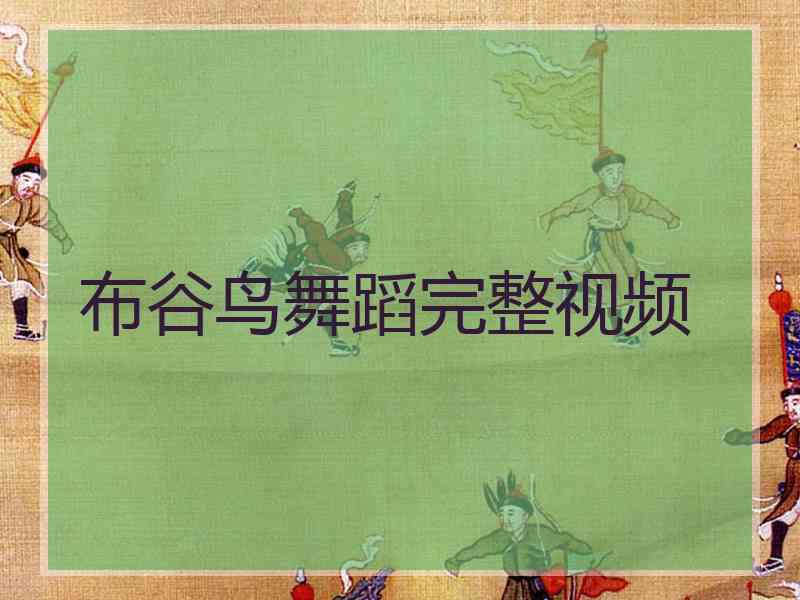 布谷鸟舞蹈完整视频